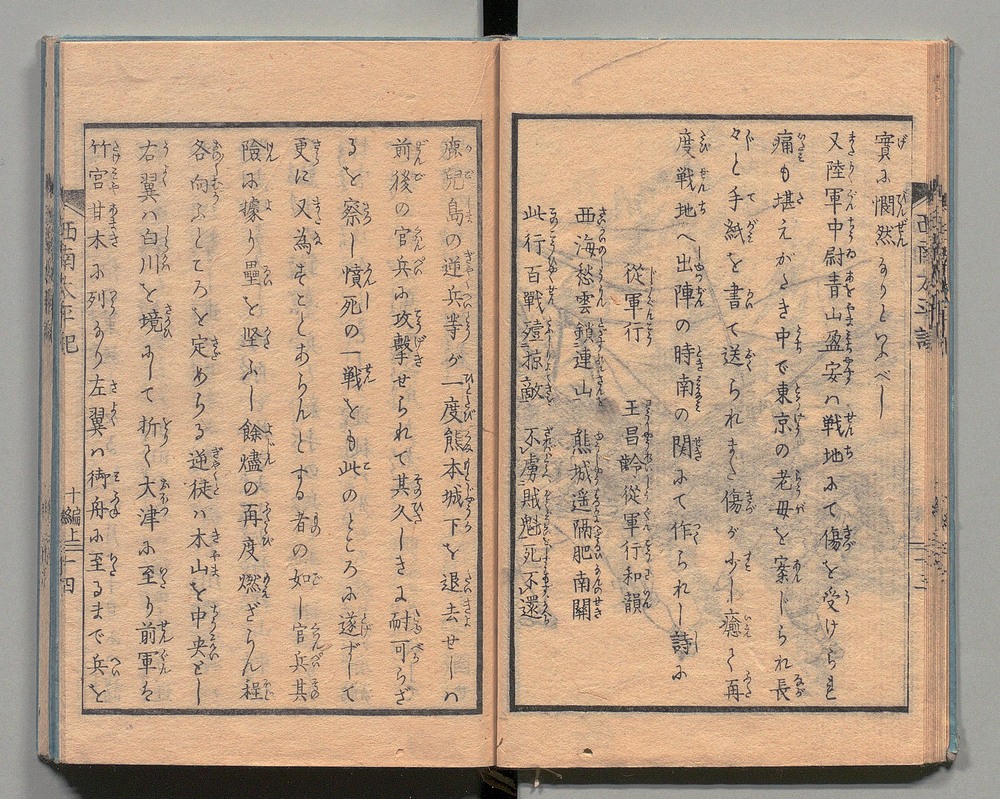 實に憫然なりといふべし
又陸軍中尉青山盈安ハ戦地にて傷を受けられ
痛も堪えがたき中で東京の老母を案じられ長
々と手紙を書て送られまた傷が少し癒て再
度戦地へ出陣の時南の関にて作られし詩に
従軍行 王昌齡從軍行和韻
西海愁雲鎖連山 熊城遥隔肥南關
此行百戰殪掠敵 不虜賊魁死不還
西南太平記
鹿兒島の逆兵等が一度熊本城下を退去せしハ
前後の官兵に攻擊せられて其久しきに耐可らざ
るを察し憤死の一戦をも此のところに遂げて
更に又為すことあらんとする者の如し官兵其
險に據り壘を堅ふし餘燼の再度燃ざらん程
各向ふところを定めらる逆徒ハ木山を中央とし
右翼ハ白川を境にして折て大津に至り前軍を
竹宮甘木に列なり左翼ハ御舟に至るまで兵を
西南太平記
十編上 十四